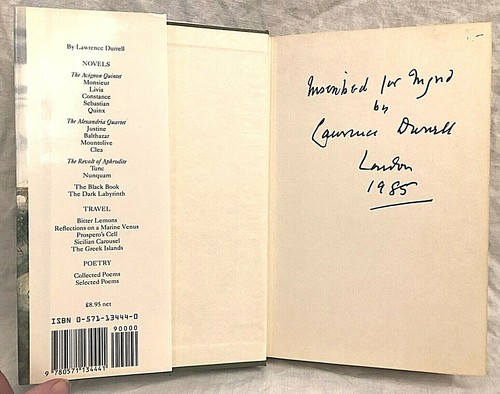 By Lawrence Durrell
NOVELS
The Avignon Quintet
Monsieur
Livia
Constance
Sebastian
Quinx
The Alexandria Quartet
Justine
Balthazar
Mountolive
Clea
The Revolt of Aphrodite
Tunc
Nunquam
The Black Book
The Dark Labyrinth
TRAVEL
Bitter Lemons
Reflections on a Marine Venus
Prospero's Cell
Sicilian Carousel
The Greek Islands
POETRY
Collected Poems
Selected Poems
£8.95 net
ISBN 0-571-13444-0
90000
9 780571 134441
Inscribed for Ingrid
by
Lawrence Durrell
London
1985